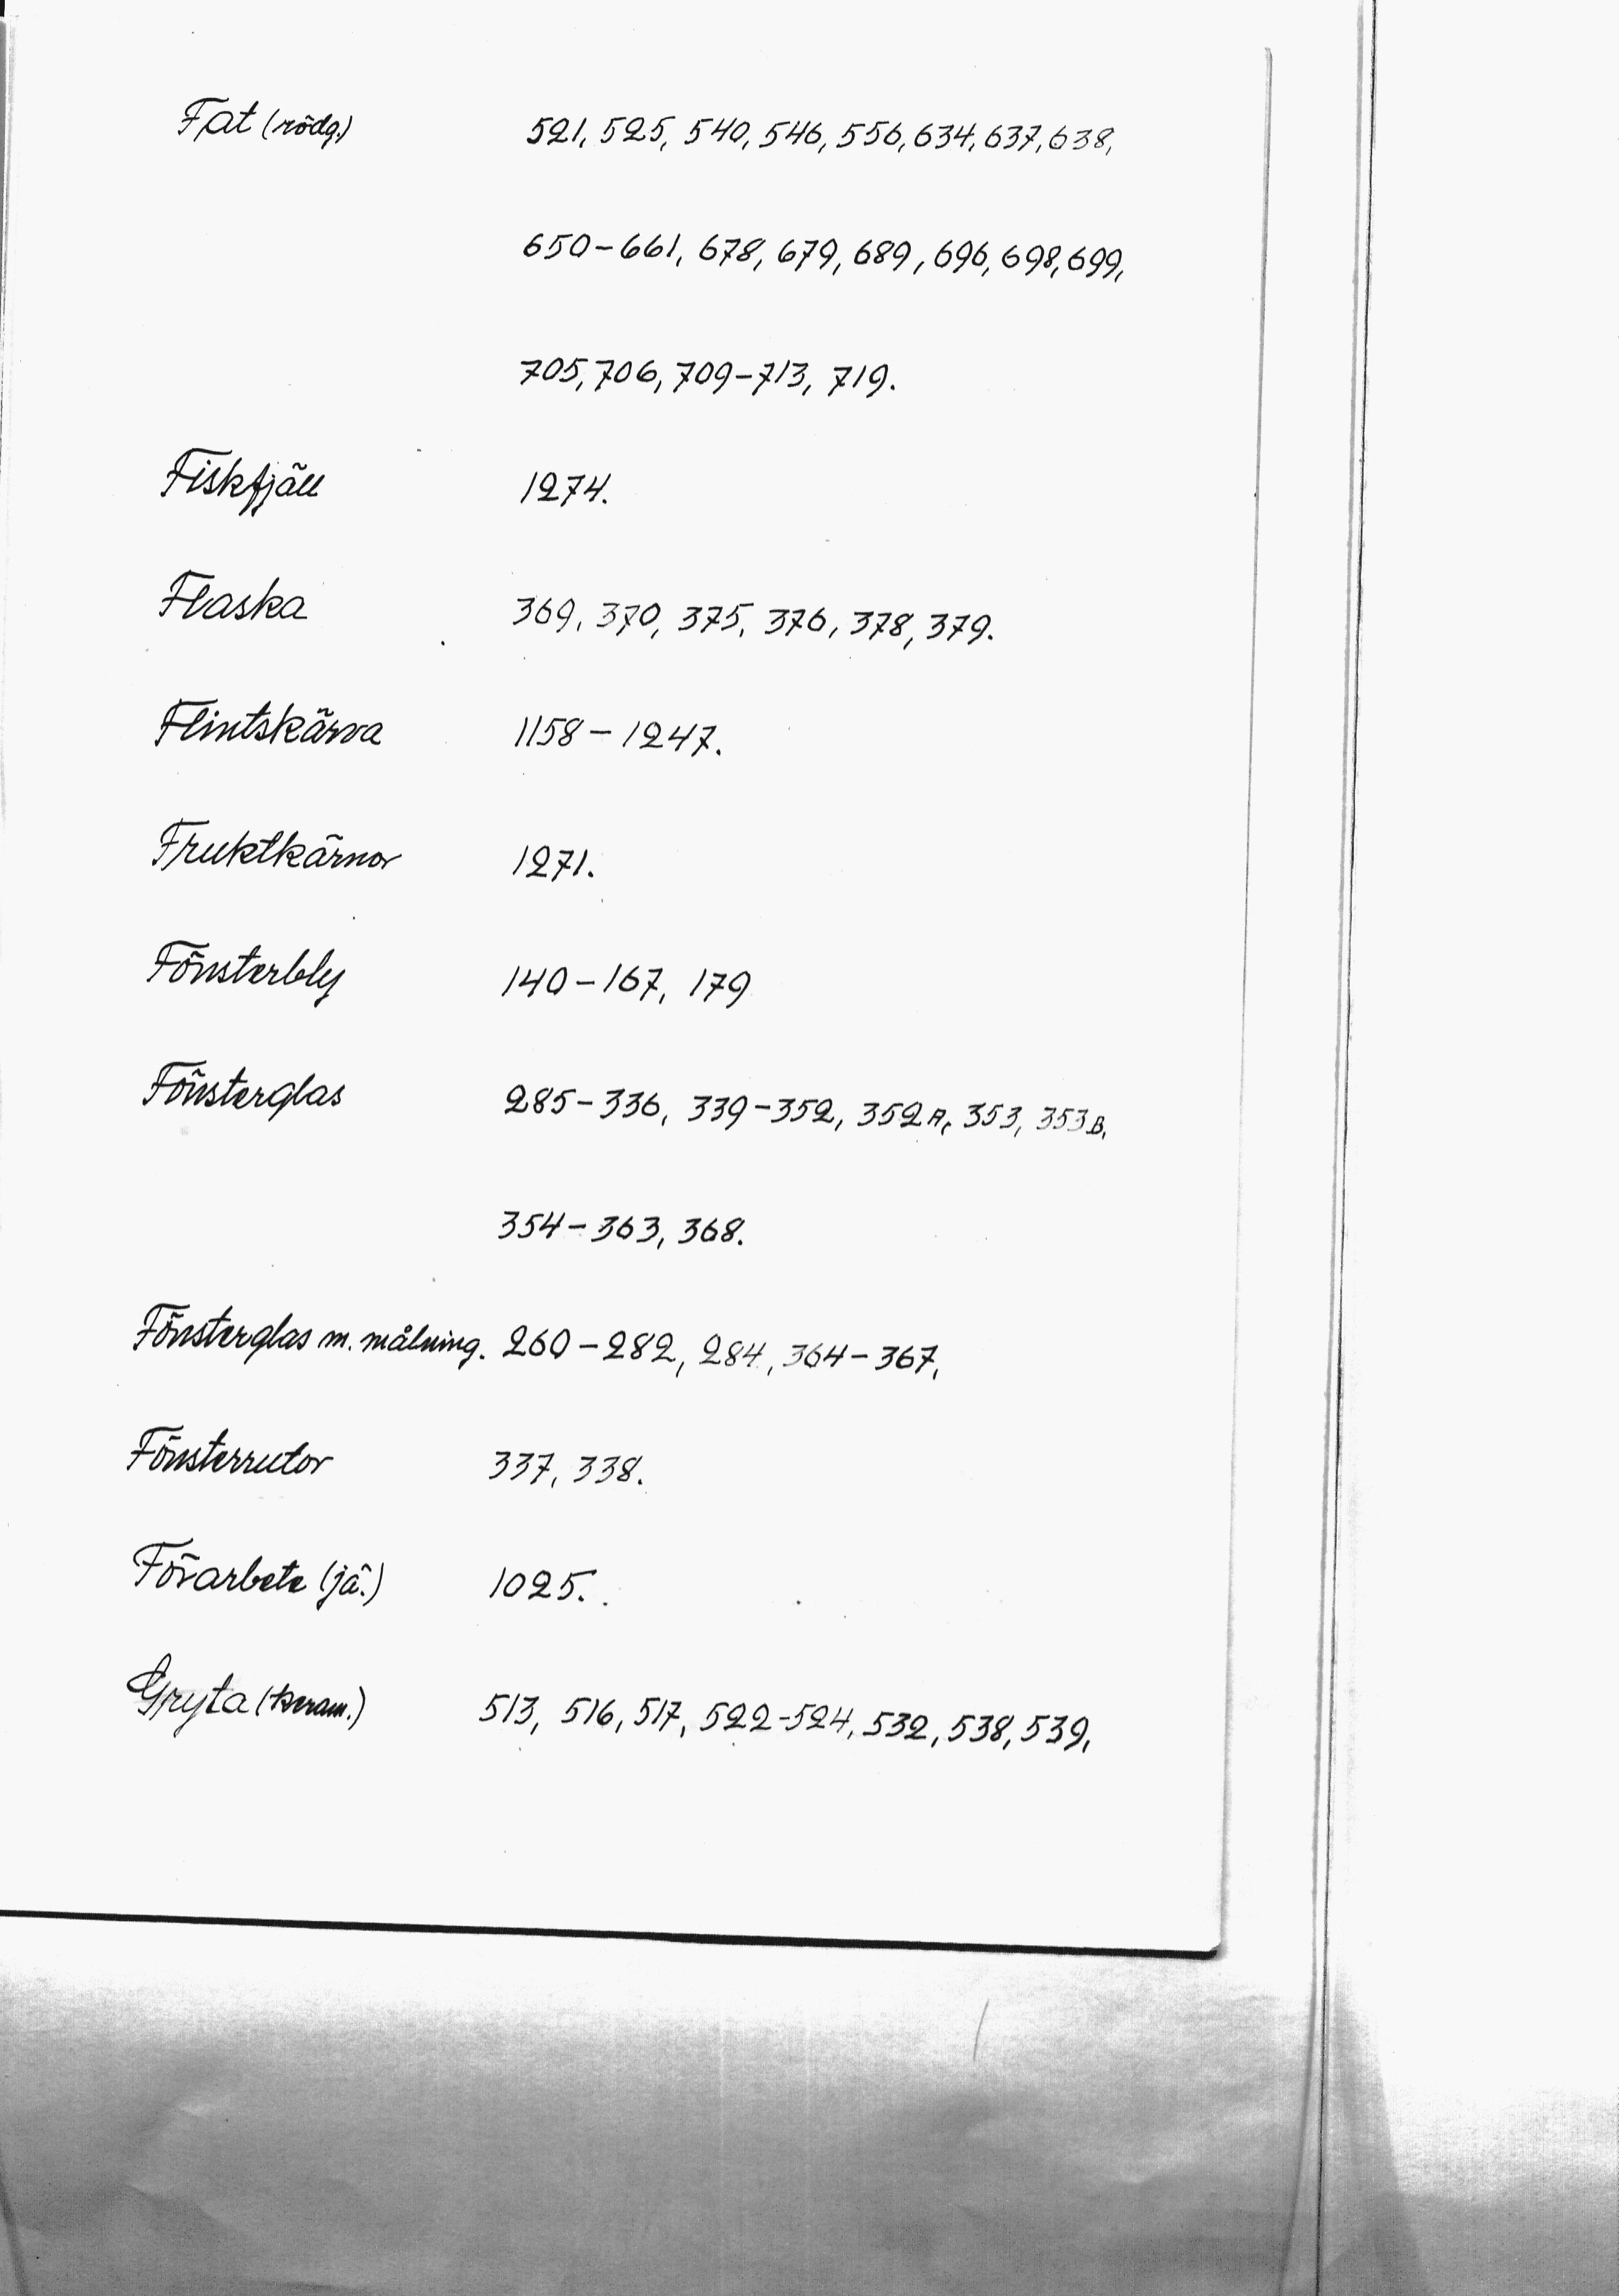 Fat (rödg.) 521, 525, 540, 546, 556, 634, 637, 638,
650-661, 678, 679, 689, 696, 698, 699,
705, 706, 709-713, 719.
Fiskfjäll 1274.
Flaska 369, 370, 375, 376, 378, 379.
Flintskärva 1158-1247.
Fruktkärnor 1271.
Fönsterbly 140-167, 179
Fönsterglas 285-336, 339-352, 352A, 353, 353B,
354-363, 368.
Fönsterglas m. målning. 260-282, 284, 364-367,
Fönsterrutor 337, 338.
Förarbete (jä.) 1025.
Gryta (keram.) 513, 516, 517, 522-524, 532, 538, 539,